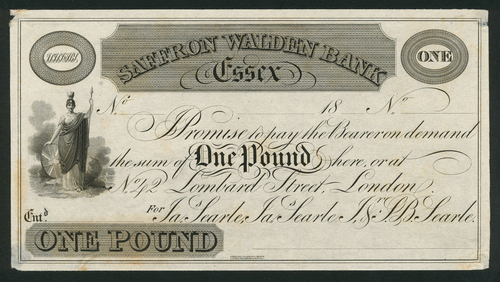 SAFFRON WALDEN BANK
ONE
Essex
No 18 No
I Promise to pay the Bearer on demand
the sum of One Pound here, or at
No. 42 Lombard Street, London.
For Jas. Searle, Jas. Searle Jr. & S.B. Searle.
Entd.
ONE POUND